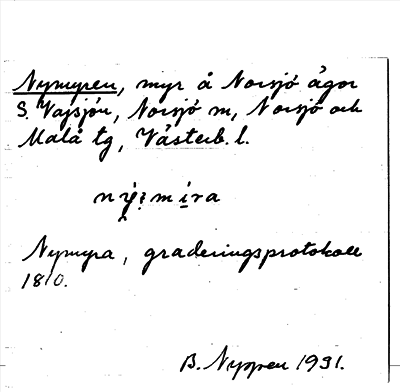 Nymyren, myr å Norsjö ägor
S. Vajsjön, Norsjö sn, Norsjö och
Malå tg, Västerb. l.
Nymyra, graderingsprotokoll
1810.
B. Nyppen 1931.